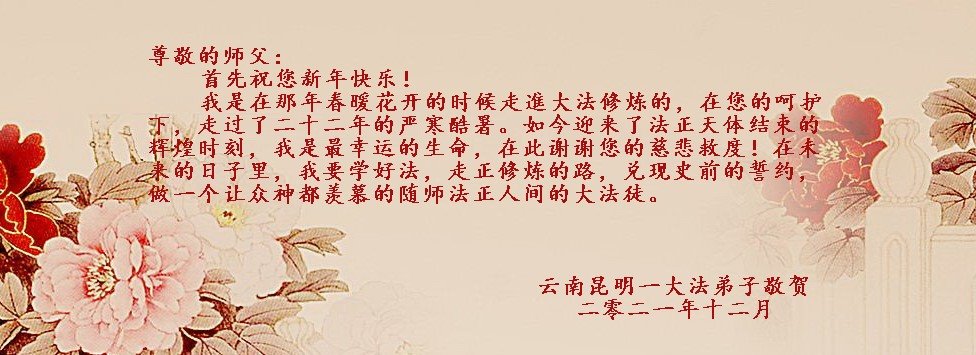 尊敬的师父：
首先祝您新年快乐！
我是在那年春暖花开的时候走進大法修炼的，在您的呵护
下，走过了二十二年的严寒酷暑。如今迎来了法正天体结束的
辉煌时刻，我是最幸运的生命，在此谢谢您的慈悲救度！在未
来的日子里，我要学好法，走正修炼的路，兑现史前的誓约，
做一个让众神都羡慕的随师法正人间的大法徒。
云南昆明一大法弟子敬贺
二零二一年十二月